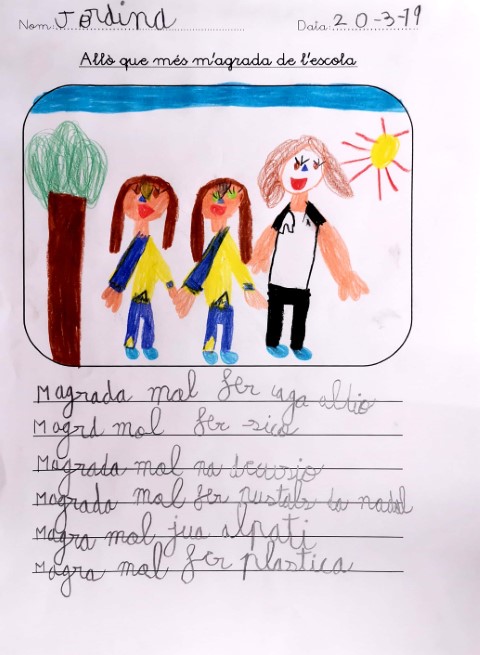 Nom: Jordina Data: 20-3-19
Allò que més m'agrada de l'escola
Magrada mol fer caga altio
Magrd mol fer sico
Magrada mol na dcursio
Magrada mol fer pustals da nadal
Magra mol jua alpati
Magra mol fer plastica